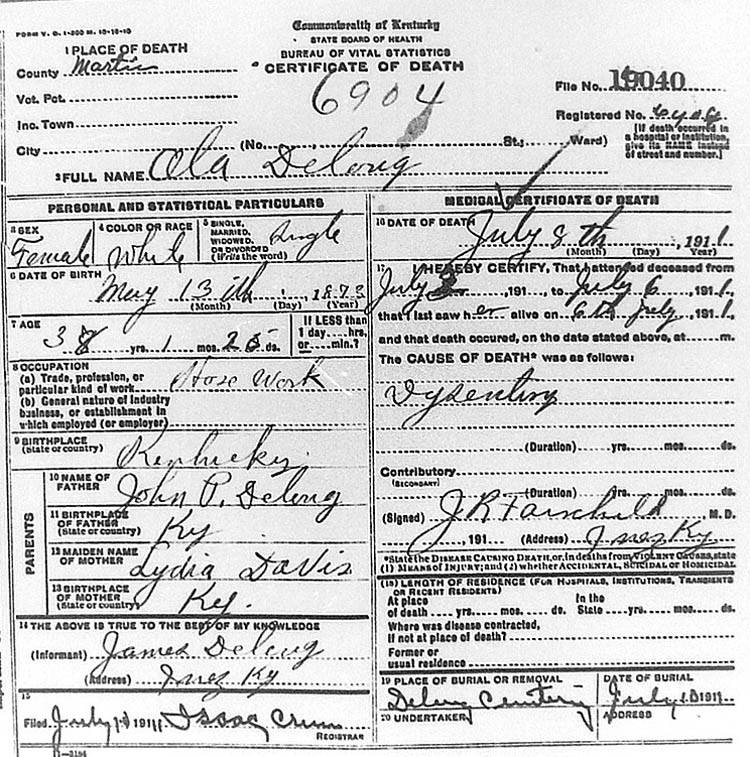 FORM V. S. 1-300 M. 10-18-10
Commonwealth of Kentucky
STATE BOARD OF HEALTH
BUREAU OF VITAL STATISTICS
CERTIFICATE OF DEATH
1 PLACE OF DEATH
County Martin
Vot. Pct.
Inc. Town
City (No. St.; Ward)
6904
File No. 19040
Registered No.
[If death occurred in
a hospital or institution,
give its NAME instead
of street and number.]
2 FULL NAME Ola Delong
PERSONAL AND STATISTICAL PARTICULARS
3 SEX
Female
4 COLOR OR RACE
White
5 SINGLE,
MARRIED,
WIDOWED,
OR DIVORCED
(Write the word)
Single
6 DATE OF BIRTH
May 13th, 1873
(Month) (Day) (Year)
7 AGE
38 yrs. 1 mos. 25 ds.
If LESS than
1 day....hrs.
or....min.?
8 OCCUPATION
(a) Trade, profession, or
particular kind of work Hose Work
(b) General nature of industry
business, or establishment in
which employed (or employer)
9 BIRTHPLACE
(State or country)
Kentucky
PARENTS
10 NAME OF
FATHER
John P. Delong
11 BIRTHPLACE
OF FATHER
(State or country)
Ky
12 MAIDEN NAME
OF MOTHER
Lydia Davis
13 BIRTHPLACE
OF MOTHER
(State or country)
Ky.
14 THE ABOVE IS TRUE TO THE BEST OF MY KNOWLEDGE
(Informant) James Delong
(Address) Inez Ky
15
Filed July 1911 Issac Crum
REGISTRAR
11-3184
MEDICAL CERTIFICATE OF DEATH
16 DATE OF DEATH
July 8th, 1911
(Month) (Day) (Year)
17 I HEREBY CERTIFY, That I attended deceased from
July, 191, to July 6, 1911,
that I last saw her alive on 6th July, 1911,
and that death occured, on the date stated above, at....m.
The CAUSE OF DEATH* was as follows:
Dysentery
(Duration) yrs. mos. ds.
Contributory
(SECONDARY)
(Duration) yrs. mos. ds.
(Signed) J R Fairchild M.D.
, 191 (Address) Inez Ky
*State the DISEASE CAUSING DEATH, or, in deaths from VIOLENT CAUSES, state
(1) MEANS OF INJURY; and (2) whether ACCIDENTAL, SUICIDAL OR HOMICIDAL
(18) LENGTH OF RESIDENCE (FOR HOSPITALS, INSTITUTIONS, TRANSIENTS
OR RECENT RESIDENTS)
At place In the
of death....yrs....mos....ds. State....yrs....mos....ds.
Where was disease contracted,
if not at place of death?
Former or
usual residence
19 PLACE OF BURIAL OR REMOVAL
DATE OF BURIAL
July 1911
20 UNDERTAKER
ADDRESS